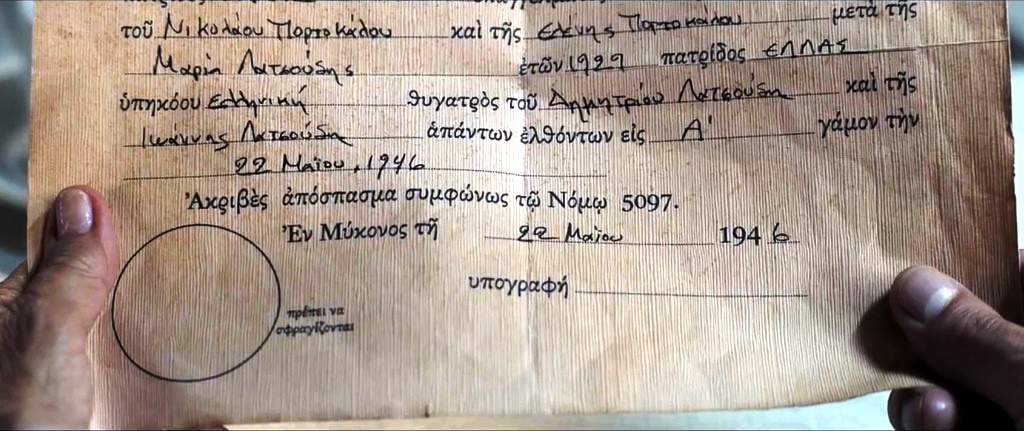 τοῦ Νικολάου Πορτοκάλου καὶ τῆς Ελένης Πορτοκάλου μετὰ τῆς
Μαρία Λατσούδης ἐτῶν 1929 πατρίδος ΕΛΛΑΣ
ὑπηκόου Ελληνική θυγατρὸς τοῦ Δημητρίου Λατσούδη καὶ τῆς
Ιωάννης Λατσούδη ἁπάντων ἐλθόντων εἰς Α' γάμον τὴν
22 Μαΐου, 1946
Ἀκριβὲς ἀπόσπασμα συμφώνως τῷ Νόμῳ 5097.
Ἐν Μύκονος τῇ 22 Μαΐου 1946
υπογραφή
πρέπει να
σφραγίζονται